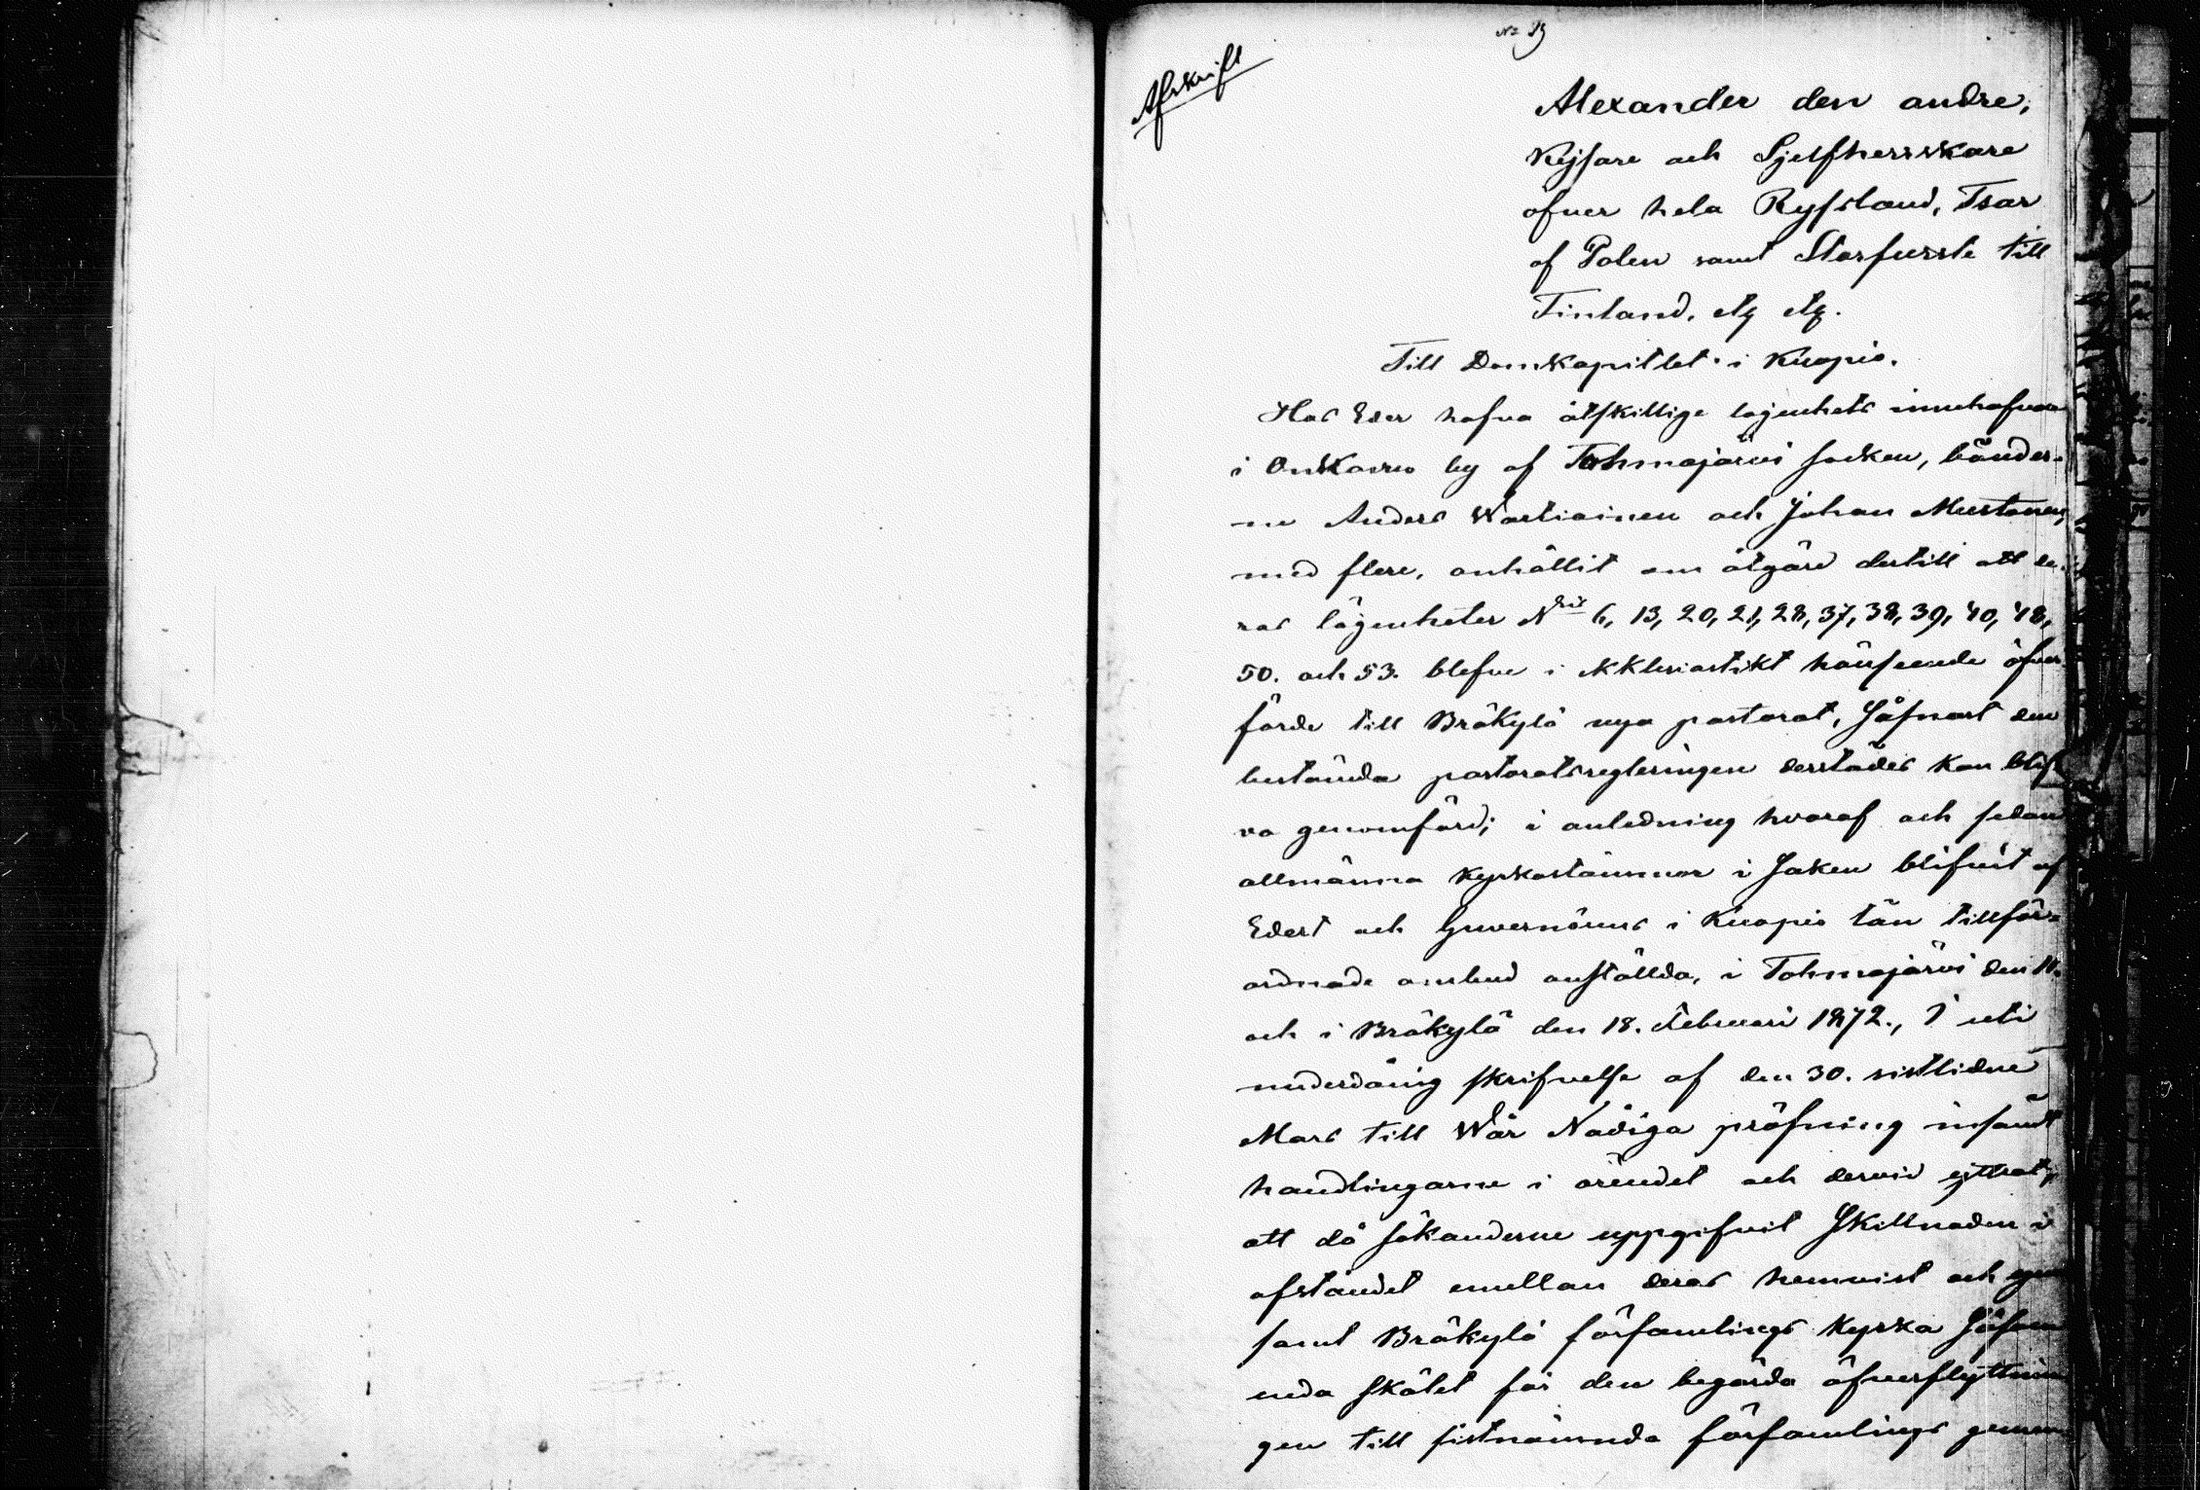 No 19
Afskrift
Alexander den andre,
Kejsare och Sjelfherrskare
öfver hela Ryssland, Tsar
af Polen samt Storfurste till
Finland, etz etz.
Till Domkapitlet i Kuopio.
Hos Eder hafva åtskillige lägenhets innehafvare
i Onkamo by af Tohmajärvi socken, bönder-
ne Anders Wartiainen och Johan Mustonen,
med flere, anhållit om åtgärd dertill att de-
ras lägenheter N:ris 6, 13, 20, 21, 28, 37, 38, 39, 40, 48,
50. och 53. blefve i ekklesiastikt hänseende öfver
förde till Bräkylä nya pastorat, såsnart den
bestämda pastoratsregleringen derstädes kan blif
va genomförd; i anledning hvaraf och sedan
allmänna kyrkostämmor i saken blifvit af
Edert och Guvernörens i Kuopio län tillför-
ordnade ombud anställda, i Tohmajärvi den 11.
och i Bräkylä den 18. Februari 1872., I uti
underdånig skrifvelse af den 30. sistlidne
Mars till Wår Nådiga pröfning insändt
handlingarne i ärendet och dervid yttrat,
att då sökanderne uppgifvit skillnaden i
afståndet emellan deras hemvist och
samt Bräkylä församlings kyrka såsom
enda skälet för den begärda öfverflyttnin
gen till sistnämnda församlings gemen